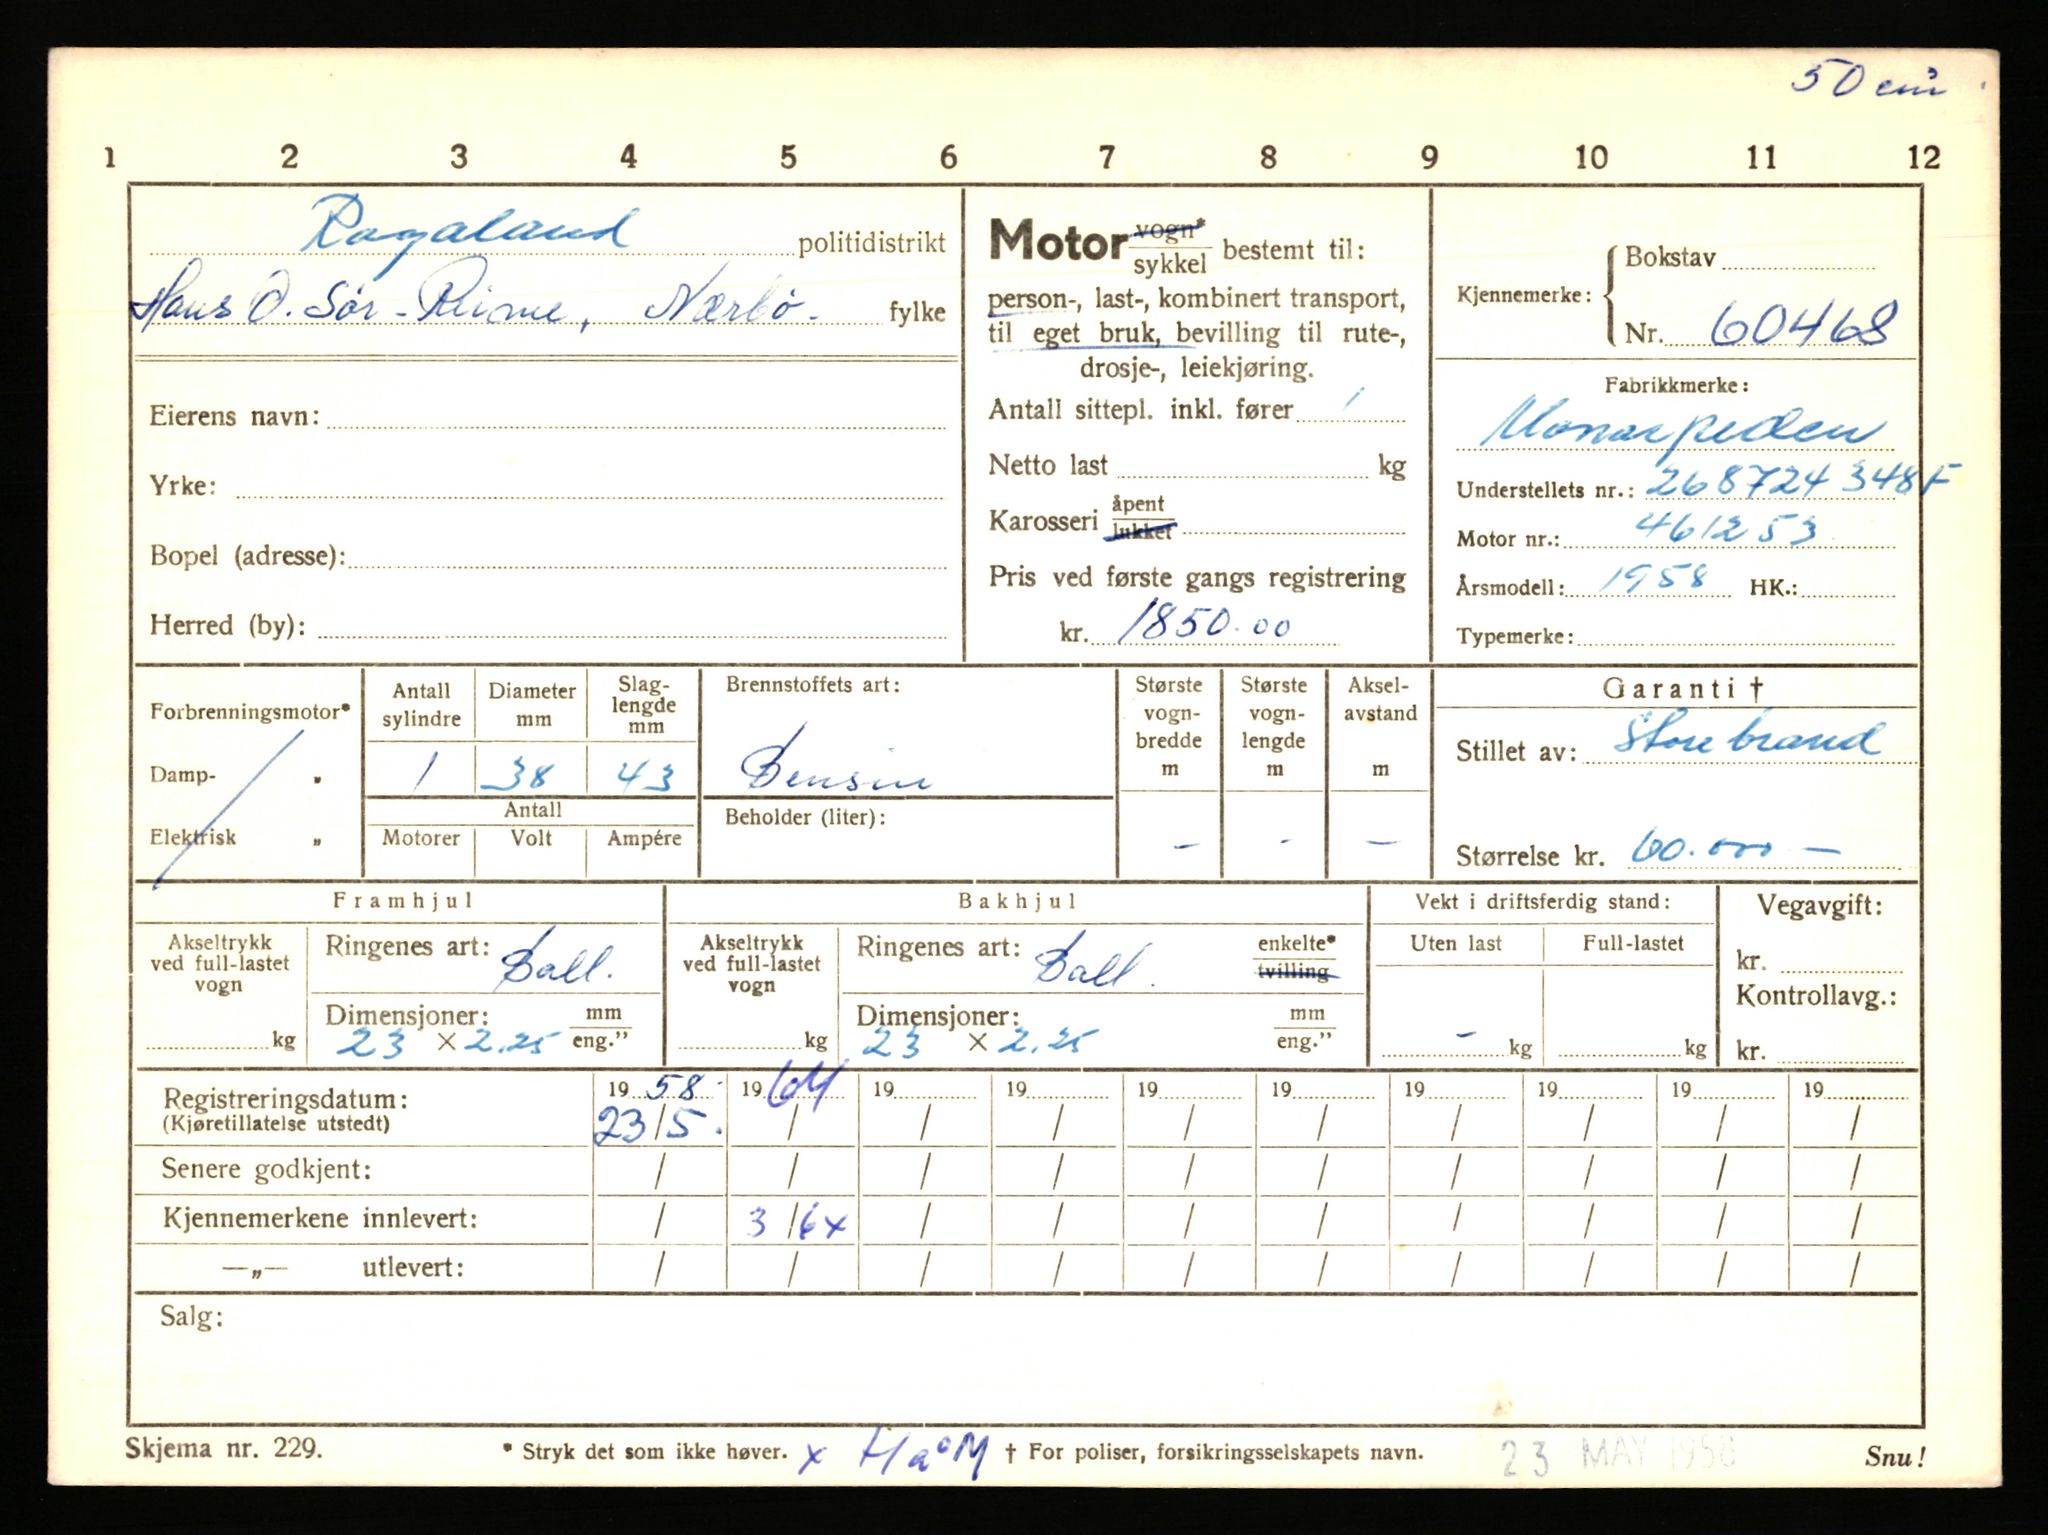 50 cm³
1 2 3 4 5 6 7 8 9 10 11 12
Rogaland politidistrikt
Hans O. Sør-Reime, Nærbø. fylke
Eierens navn:
Yrke:
Bopel (adresse):
Herred (by):
Motor vogn* sykkel bestemt til:
person-, last-, kombinert transport,
til eget bruk, bevilling til rute-,
drosje-, leiekjøring.
Antall sittepl. inkl. fører 1
Netto last kg
Karosseri åpent lukket
Pris ved første gangs registrering
kr. 1850.00
Kjennemerke: Bokstav
Nr. 60468
Fabrikkmerke:
Monarpeden
Understellets nr.: 268724 348F
Motor nr.: 461253
Årsmodell: 1958 HK.:
Typemerke:
Forbrenningsmotor*
Damp- „
Elektrisk „
Antall sylindre
Diameter mm
Slag-
lengde
mm
1 38 43
Antall
Motorer Volt Ampére
Brennstoffets art:
Bensin
Beholder (liter):
Største
vogn-
bredde
m
-
Største
vogn-
lengde
m
-
Aksel-
avstand
m
-
Garanti †
Stillet av: Storebrand
Størrelse kr. 60.000 —
Framhjul
Akseltrykk
ved full-lastet
vogn
kg
Ringenes art: Ball.
Dimensjoner: mm
23 × 2.25 eng.”
Bakhjul
Akseltrykk
ved full-lastet
vogn
kg
Ringenes art: Ball. enkelte*
tvilling
Dimensjoner: mm
23 × 2.25 eng.”
Vekt i driftsferdig stand:
Uten last Full-lastet
- kg kg
Vegavgift:
kr.
Kontrollavg.:
kr.
Registreringsdatum: 19 58 19 64 19 19 19 19 19 19 19 19
(Kjøretillatelse utstedt) 23/5. / / / / / / / / /
Senere godkjent: / / / / / / / / / /
Kjennemerkene innlevert: / 3/6x / / / / / / / /
—„— utlevert: / / / / / / / / / /
Salg:
Skjema nr. 229. * Stryk det som ikke høver. x HaaM † For poliser, forsikringsselskapets navn. 23 MAY 1958 Snu!